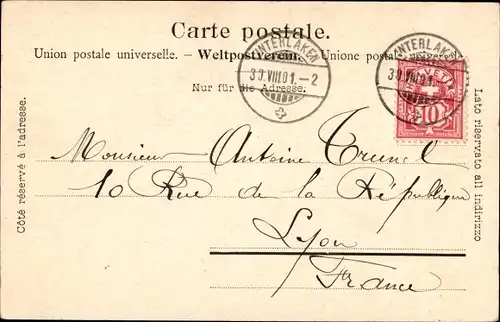 Carte postale.
Union postale universelle. – Weltpostverein. – Unione postale
Nur für die Adresse.
INTERLAKEN
30.VIII.01.–2
INTERLAKEN
30.VIII.01.
10
Côté réservé à l'adresse.
Lato riservato all indirizzo
Monsieur Antoine
10 Rue de la République
Lyon
France